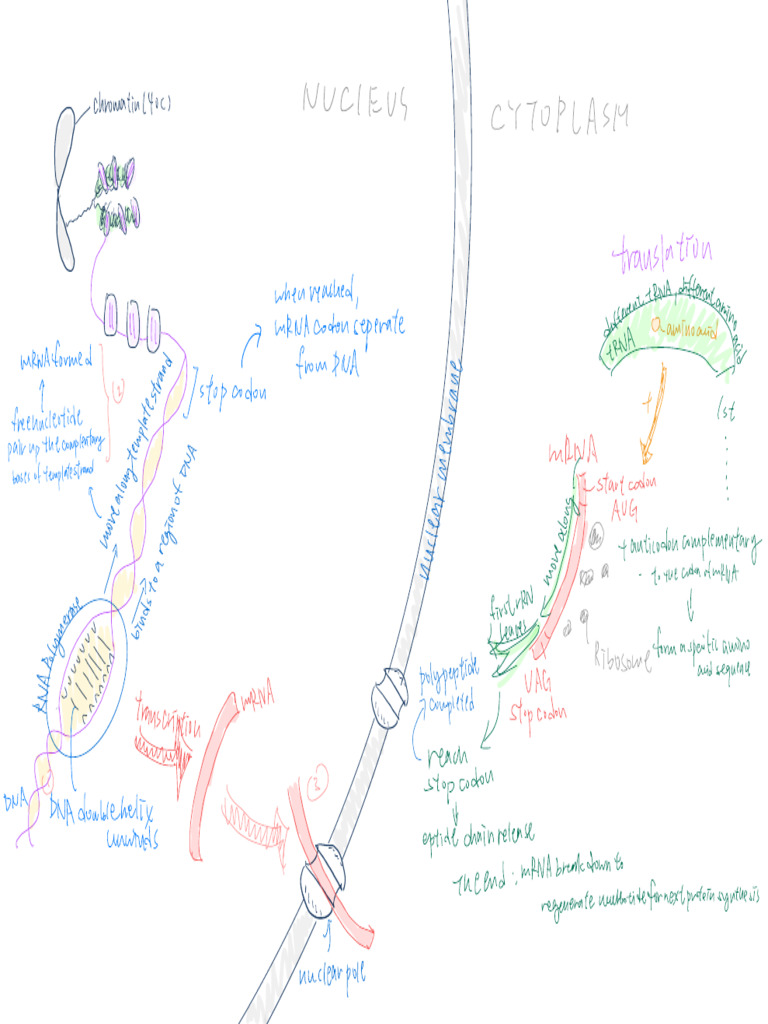 NUCLEUS
CYTOPLASM
chromatin
when reached,
mRNA codon seperate
from DNA
stop codon
mRNA formed
(2)
free nucleotide
pair up the
bases of template strand
move along template strand
binds to a region of DNA
RNA Polymerase
DNA
DNA double helix
unwinds
transcription
mRNA
(3)
nuclear pole
nuclear membrane
translation
different tRNA, different amino acid
tRNA
amino acid
+
1st
mRNA
start codon
AUG
move along
+ anticodon complementary
- to the codon of mRNA
form a specific amino
acid sequence
Ribosome
first
leaves
UAG
stop codon
polypeptide
completed
reach
stop codon
eptide chain release
The end : mRNA break down to
regenerate for next protein synthesis